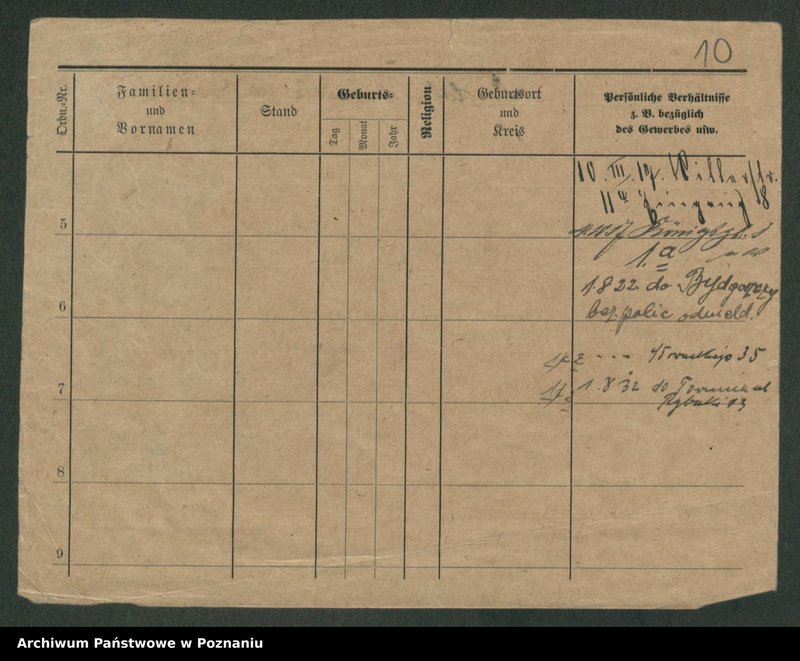 10
Ordn.-Nr.
Familien-
und
Vornamen
Stand
Geburts-
Tag
Monat
Jahr
Religion
Geburtsort
und
Kreis
Persönliche Verhältnisse
z. B. bezüglich
des Gewerbes usw.
10. III. 17.
11a Eingang 8
5
1. a
1.8.22. do Bydgoszczy
6
bez polic odmeld.
35
7
1. 8 32 do Poznania
Rybaki
8
9
Archiwum Państwowe w Poznaniu